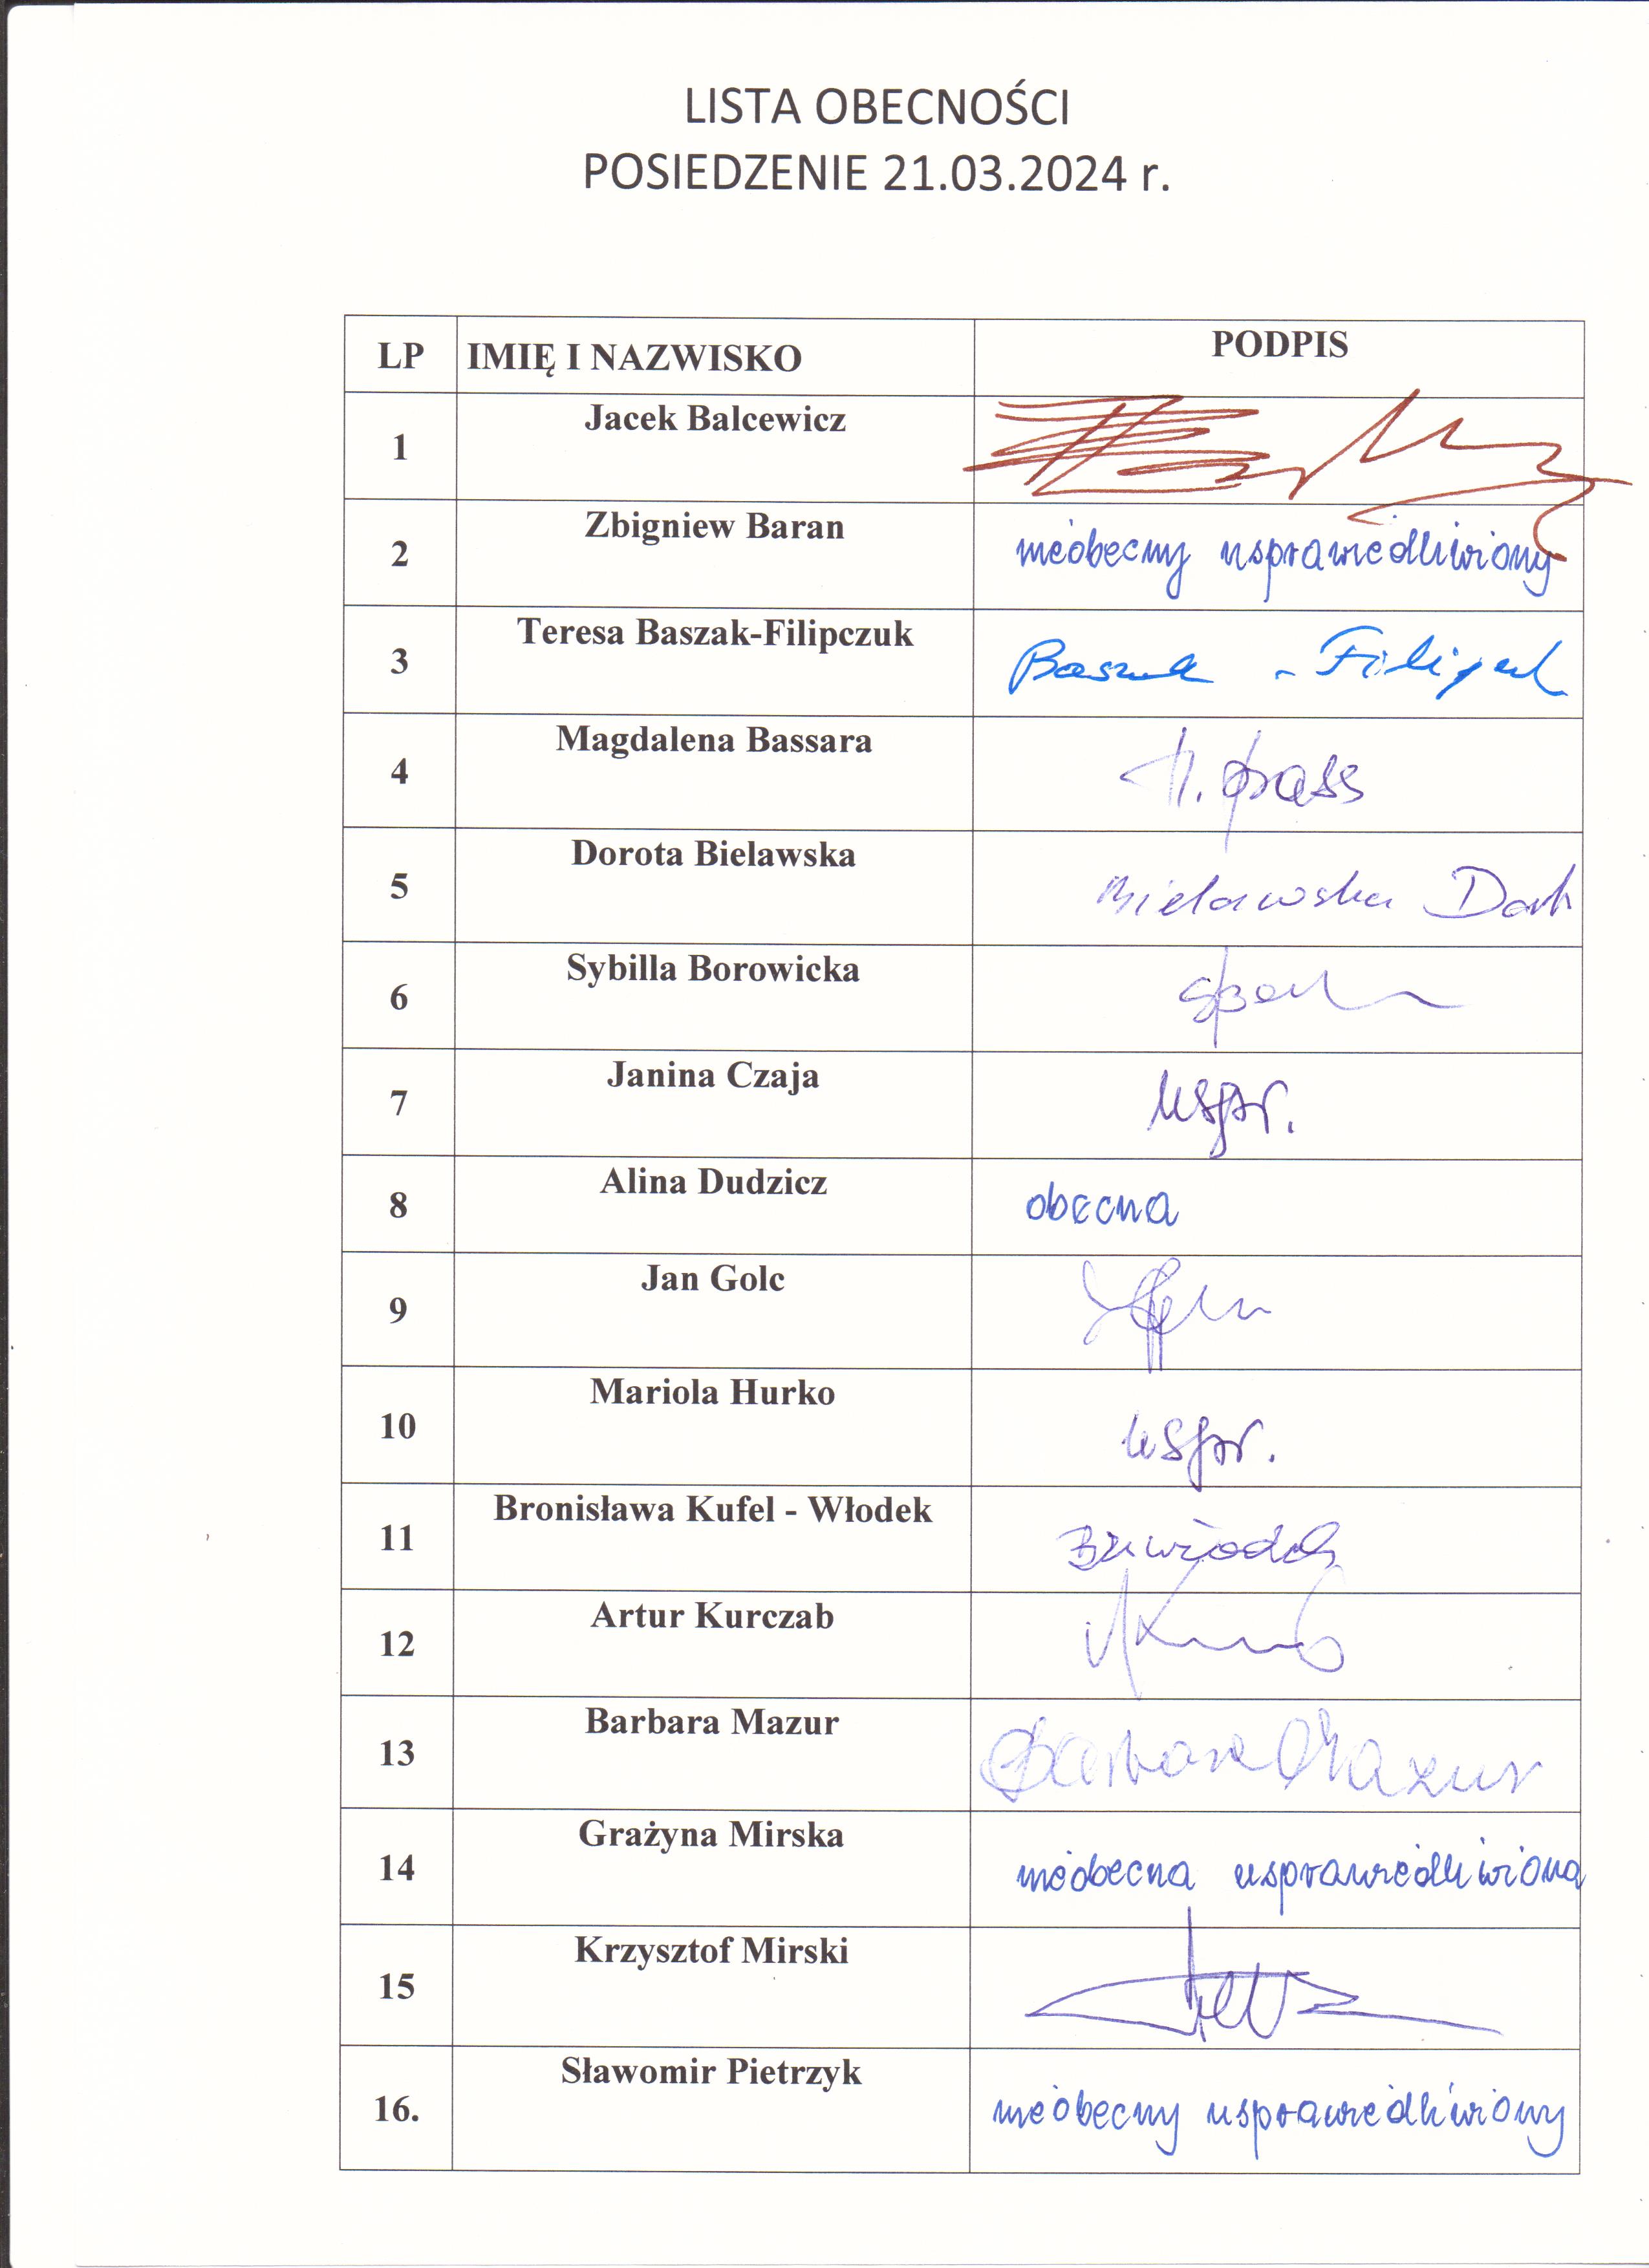 LISTA OBECNOŚCI
POSIEDZENIE 21.03.2024 r.
LP IMIĘ I NAZWISKO PODPIS
1 Jacek Balcewicz
2 Zbigniew Baran nieobecny usprawiedliwiony
3 Teresa Baszak-Filipczuk
4 Magdalena Bassara M. Bass
5 Dorota Bielawska Bielawska Dort
6 Sybilla Borowicka
7 Janina Czaja uspr.
8 Alina Dudzicz obecna
9 Jan Golc
10 Mariola Hurko uspr.
11 Bronisława Kufel - Włodek
12 Artur Kurczab
13 Barbara Mazur Barbara Mazur
14 Grażyna Mirska nieobecna usprawiedliwiona
15 Krzysztof Mirski
16. Sławomir Pietrzyk nieobecny usprawiedliwiony